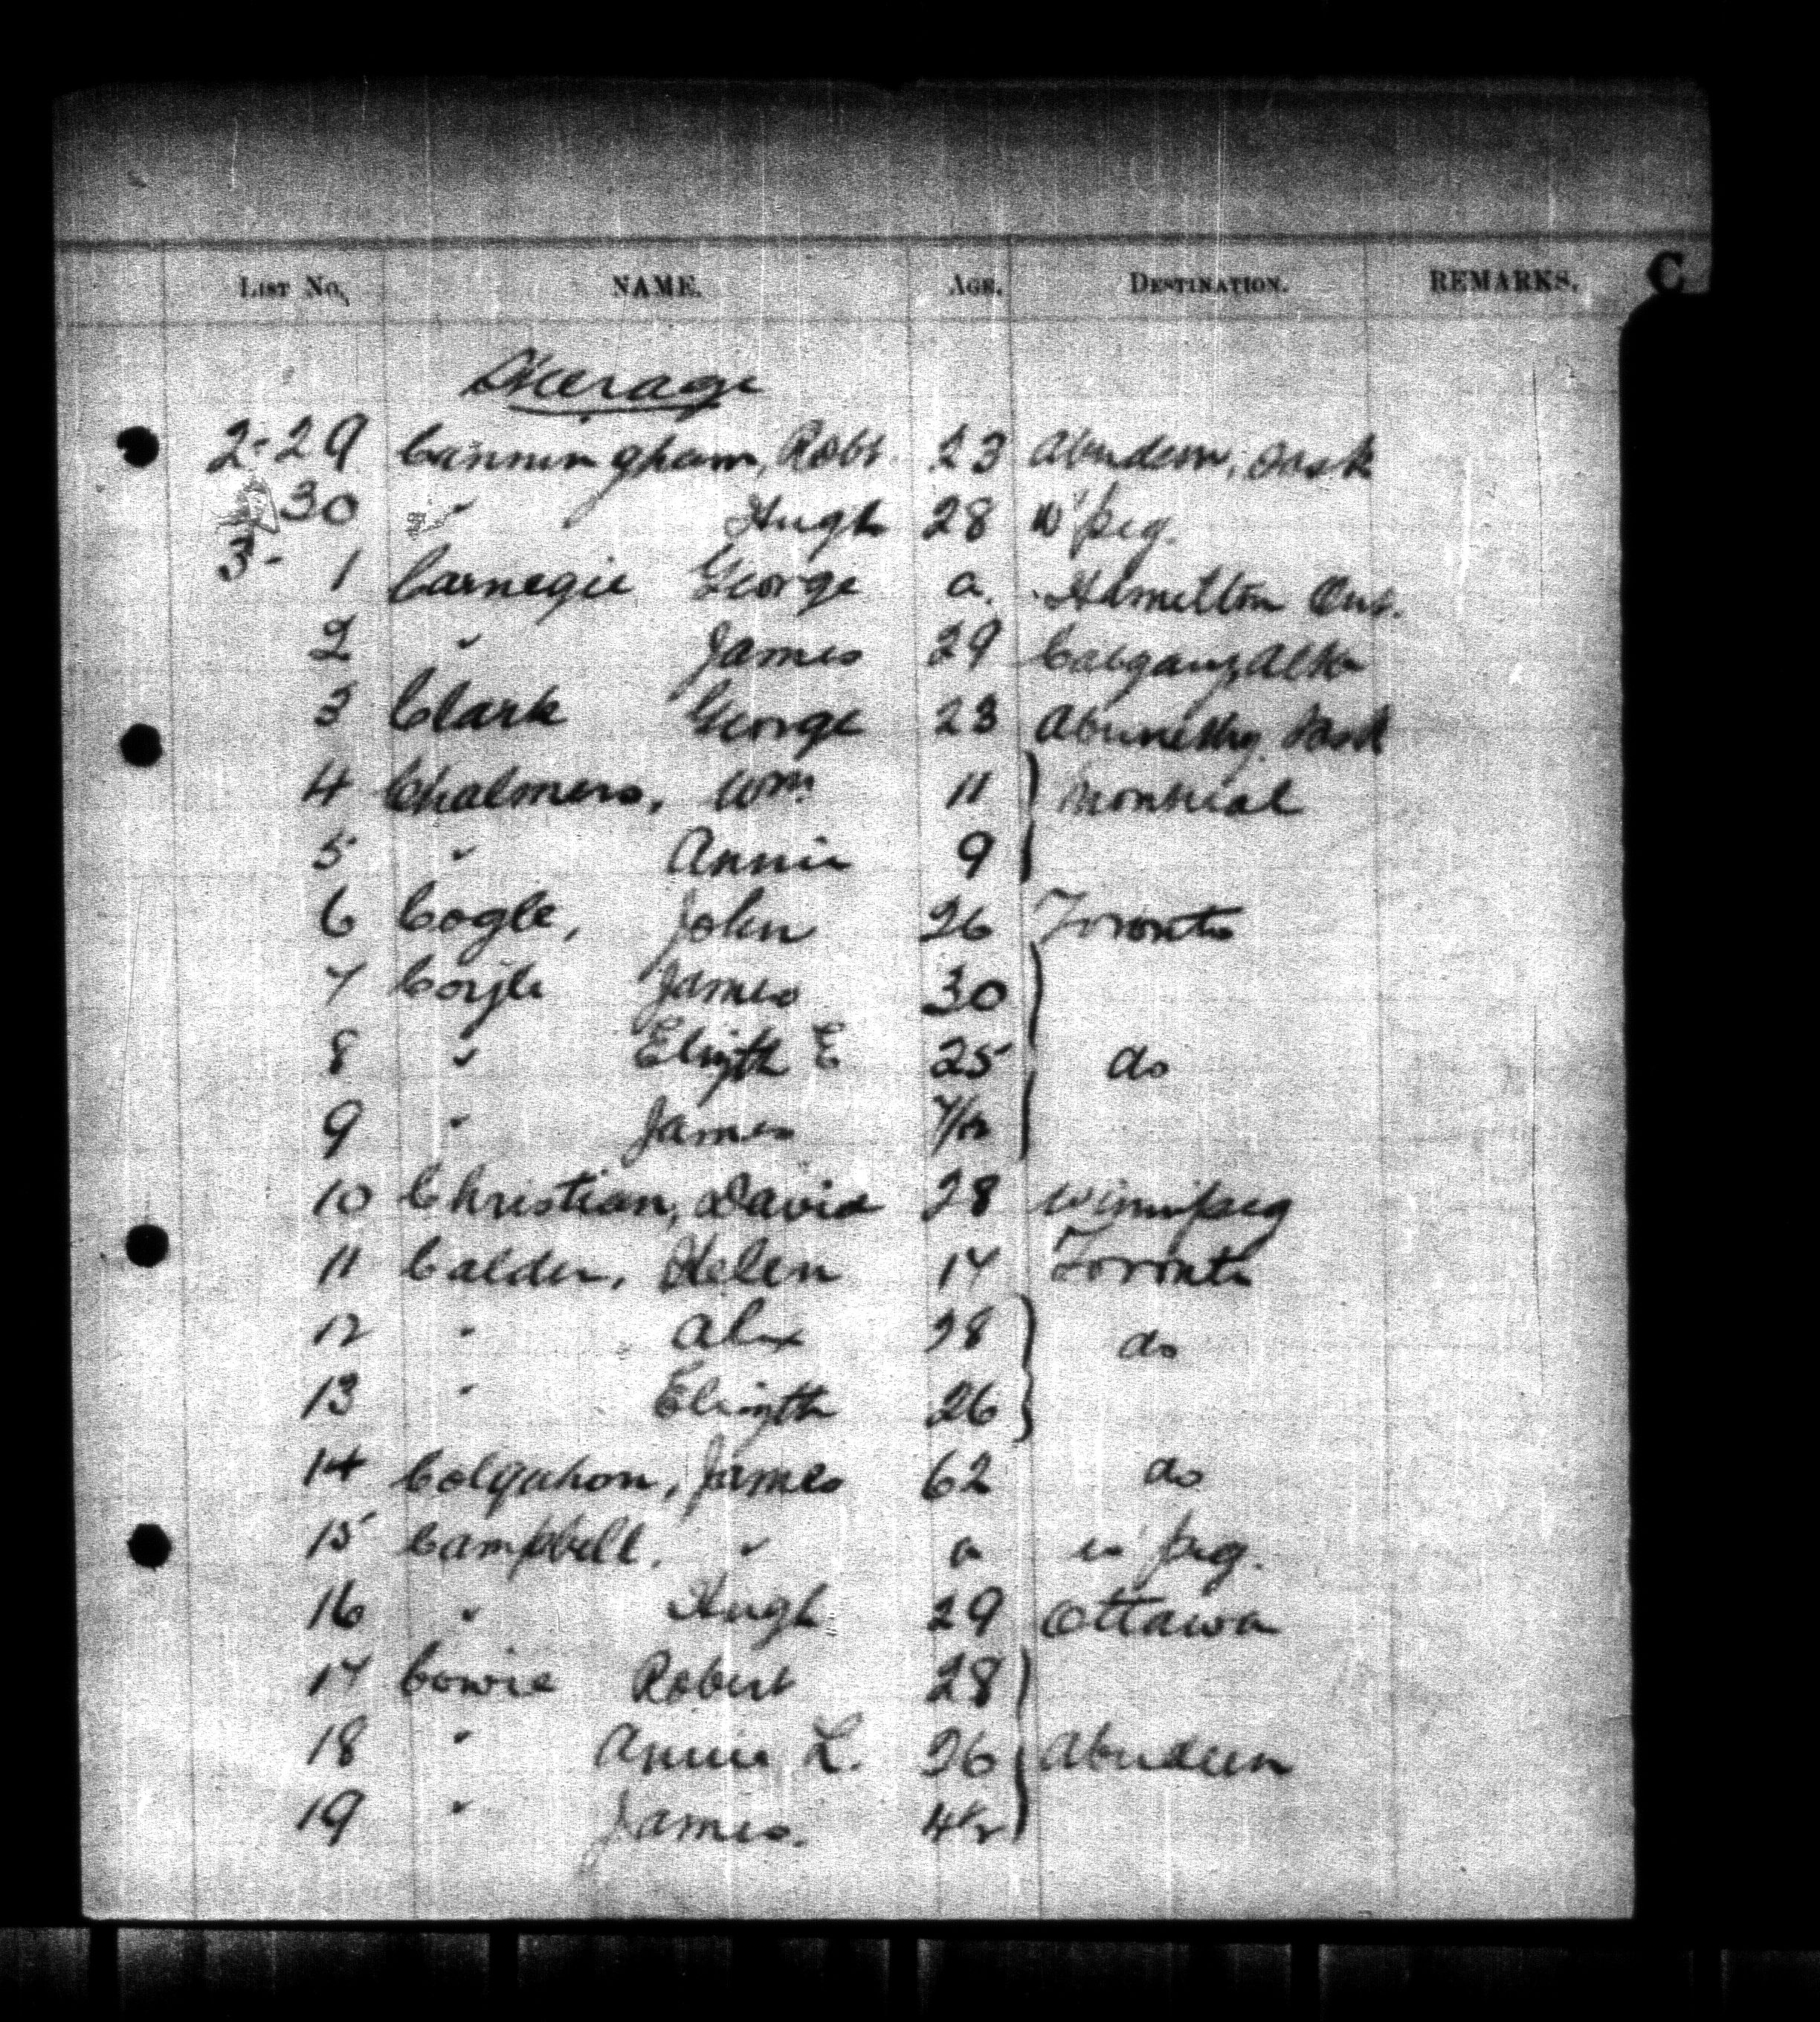 LIST No. NAME. AGE. DESTINATION. REMARKS. C
Steerage
2-29 Cunningham, Robt. 23 Aberdeen, Sask
30 " Hugh 28 W'peg.
3- 1 Carnegie George a. Hamilton Ont.
2 " James 29 Calgary, Alta
3 Clark George 23 Abernethy Sask
4 Chalmers, Wm 11 Montreal
5 " Annie 9
6 Cogle, John 26 Toronto
7 Coyle James 30
8 " Elizth E 25 do
9 " James 7/12
10 Christian, David 28 Winnipeg
11 Calder, Helen 17 Toronto
12 " Alex 28 do
13 " Elizth 26
14 Colquhon, James 62 do
15 Campbell. " a W'peg.
16 " Hugh 29 Ottawa
17 Cowie Robert 28
18 " Annie L. 26 Aberdeen
19 " James.